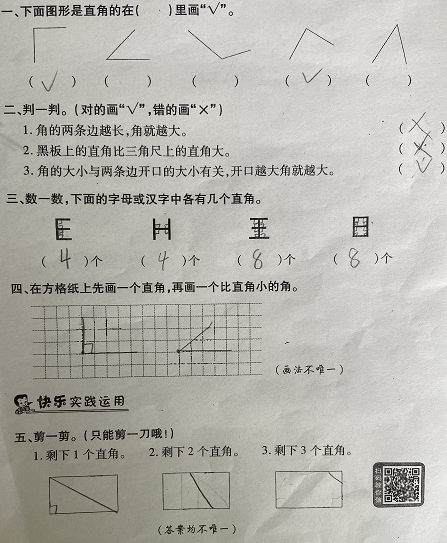 一、下面图形是直角的在(　)里画“√”。
(√) (　) (　) (√) (　)
二、判一判。(对的画“√”,错的画“×”)
1. 角的两条边越长,角就越大。 (×)
2. 黑板上的直角比三角尺上的直角大。 (×)
3. 角的大小与两条边开口的大小有关,开口越大角就越大。 (√)
三、数一数,下面的字母或汉字中各有几个直角。
E H 王 日
(4)个 (4)个 (8)个 (8)个
四、在方格纸上先画一个直角,再画一个比直角小的角。
(画法不唯一)
快乐实践运用
五、剪一剪。(只能剪一刀哦!)
1. 剩下1个直角。 2. 剩下2个直角。 3. 剩下3个直角。
(答案均不唯一)